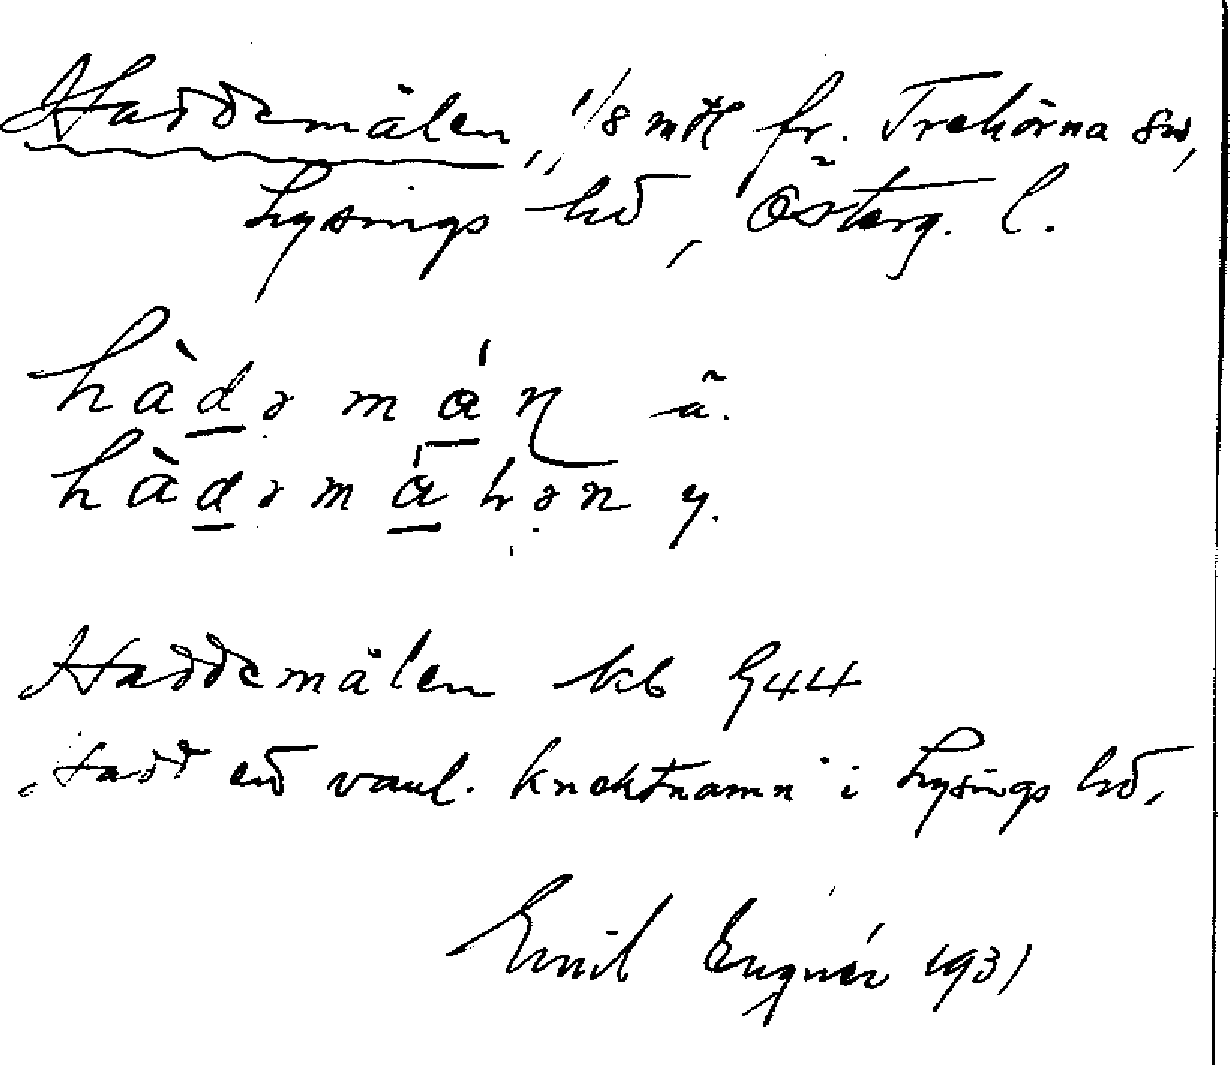 Haddemålen, 1/8 mtl fr. Trehörna sn,
Lysings hd, Österg. l.
hàdə mán ä.
hàdəmáłən y.
Haddemålen kb 1744
Hadd ett vanl. knektnamn i Lysings hd.
Emil Engnér 1931